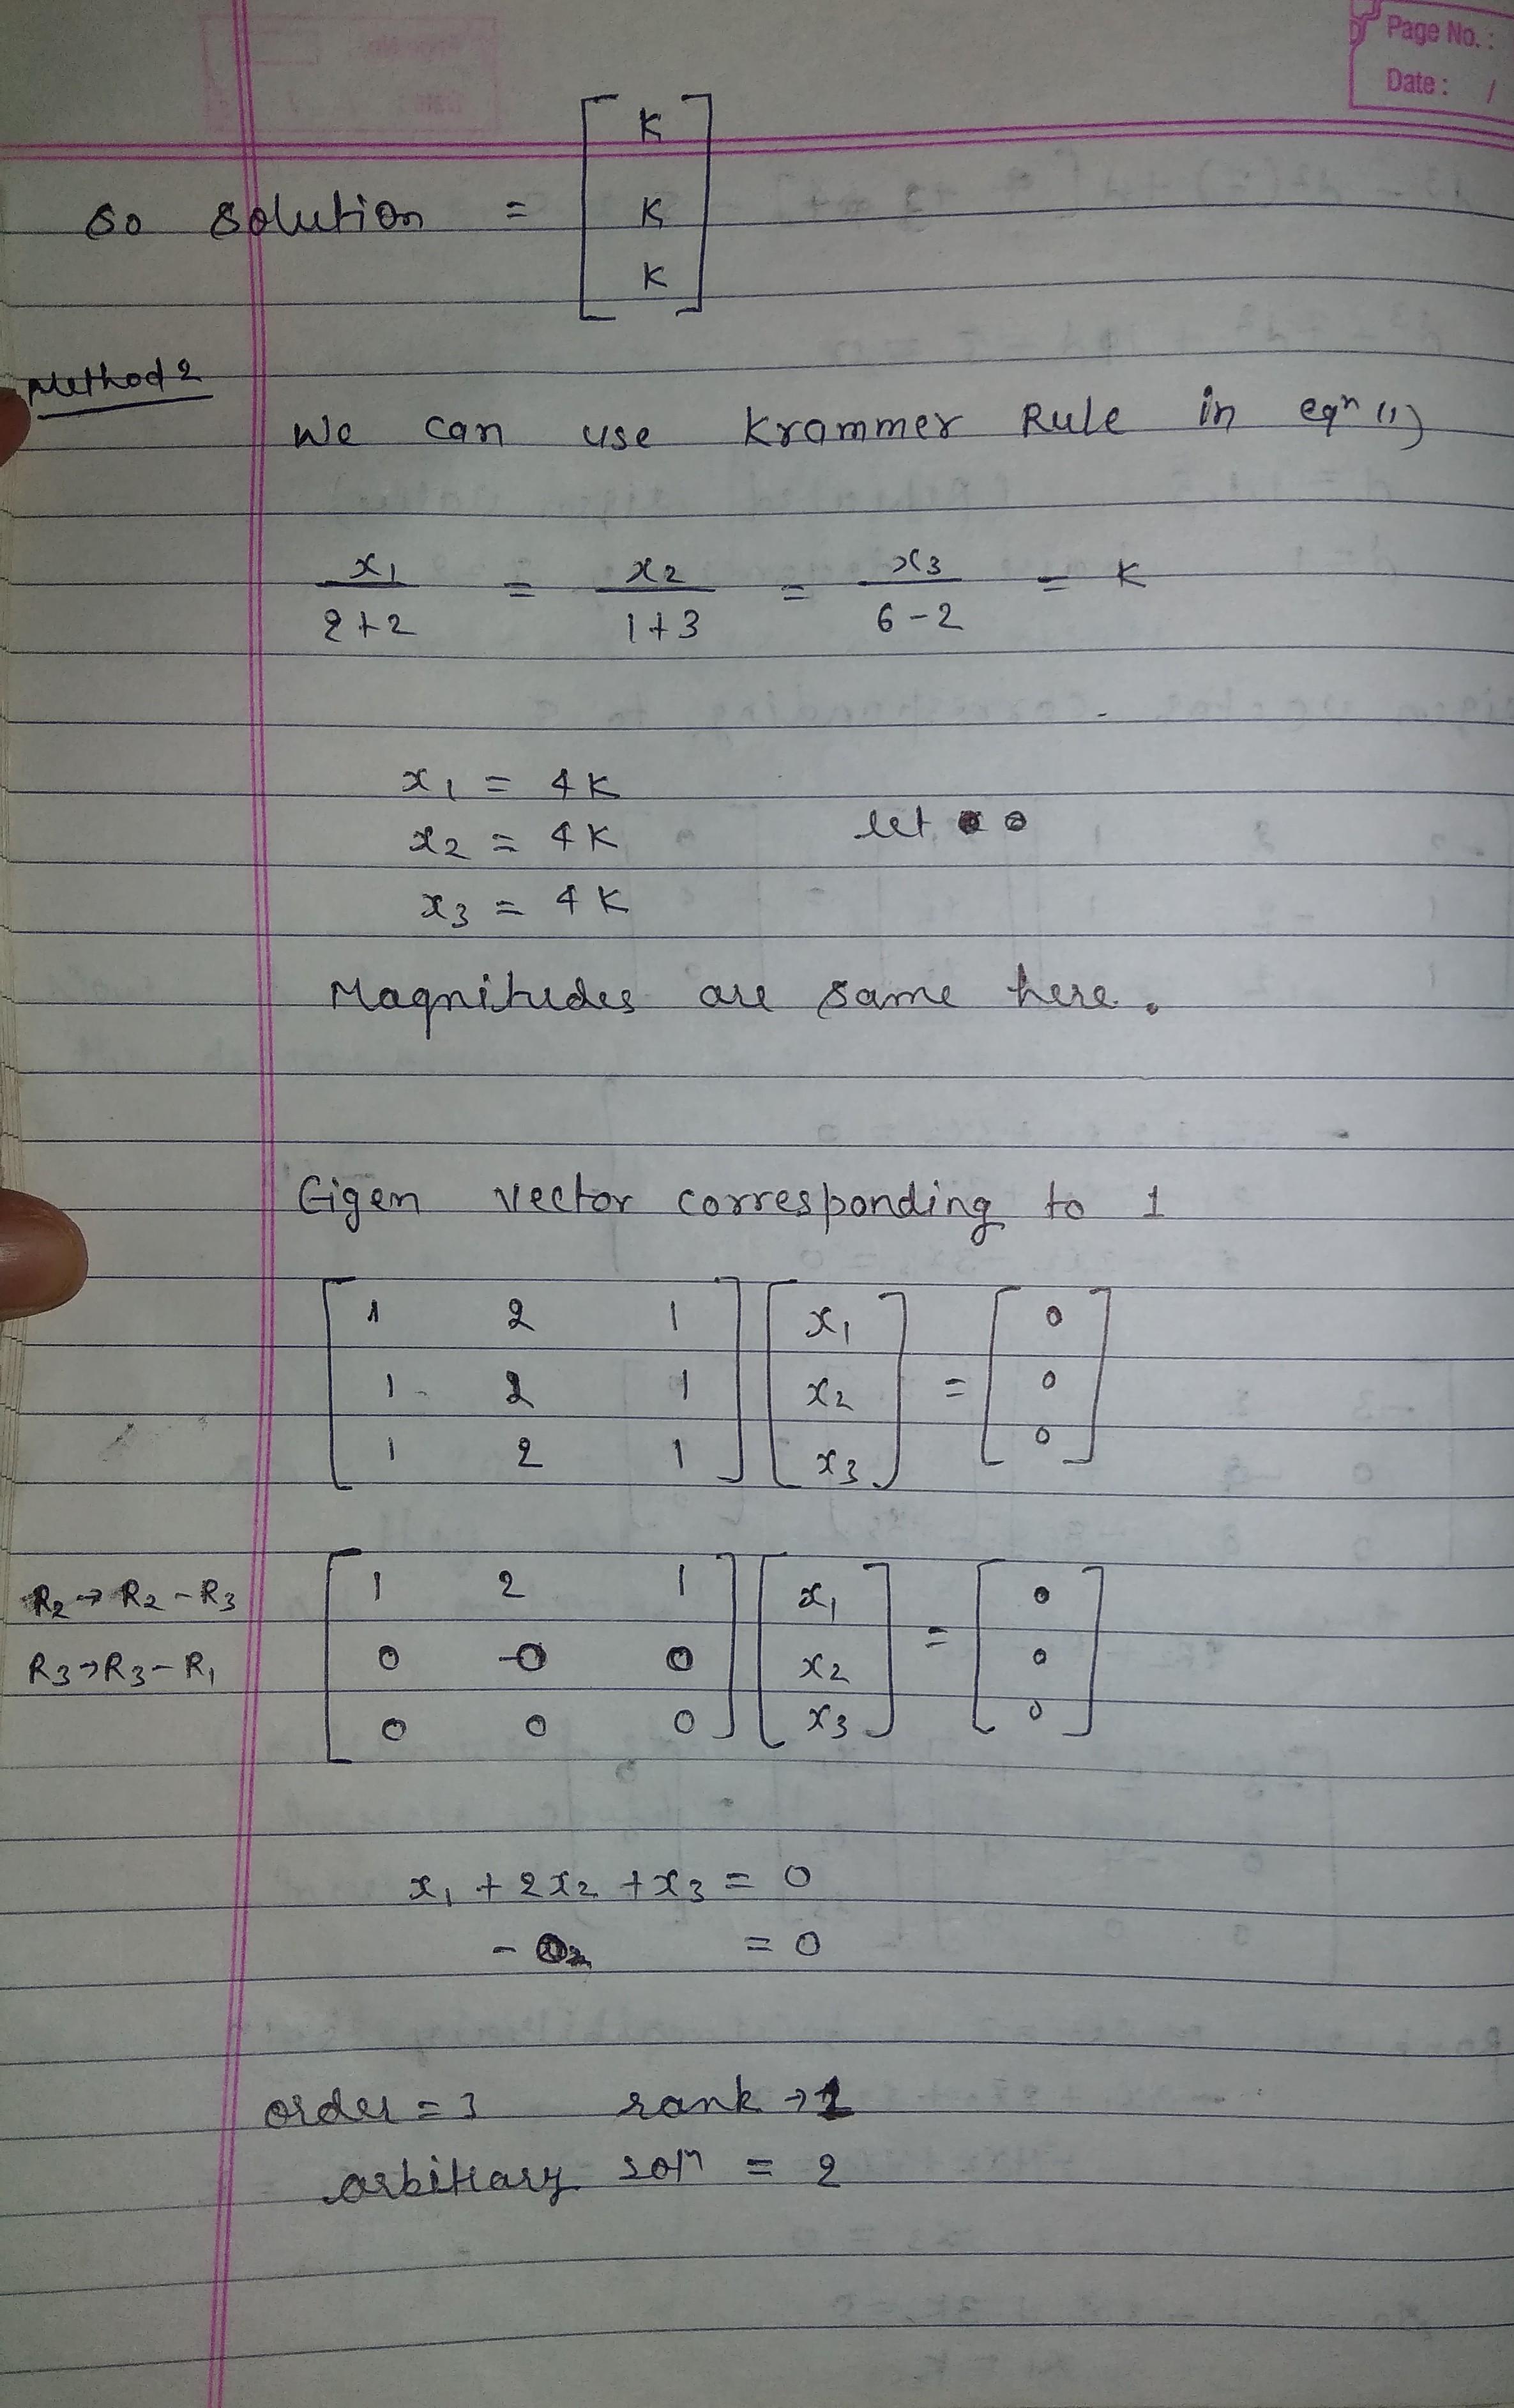 Page No. :
Date : /
K
so solution = K
K
Method 2
We can use Krammer Rule in eqn (1)
x1 / 2+2 = x2 / 1+3 = x3 / 6-2 = K
x1 = 4K
x2 = 4K let
x3 = 4K
Magnitudes are same here.
Eigen vector corresponding to 1
1 2 1 x1 0
1 2 1 x2 = 0
1 2 1 x3 0
R2→R2-R3 1 2 1 x1 0
R3→R3-R1 0 -0 0 x2 = 0
0 0 0 x3 0
x1 + 2x2 + x3 = 0
= 0
order = 3 rank → 1
arbitrary soln = 2